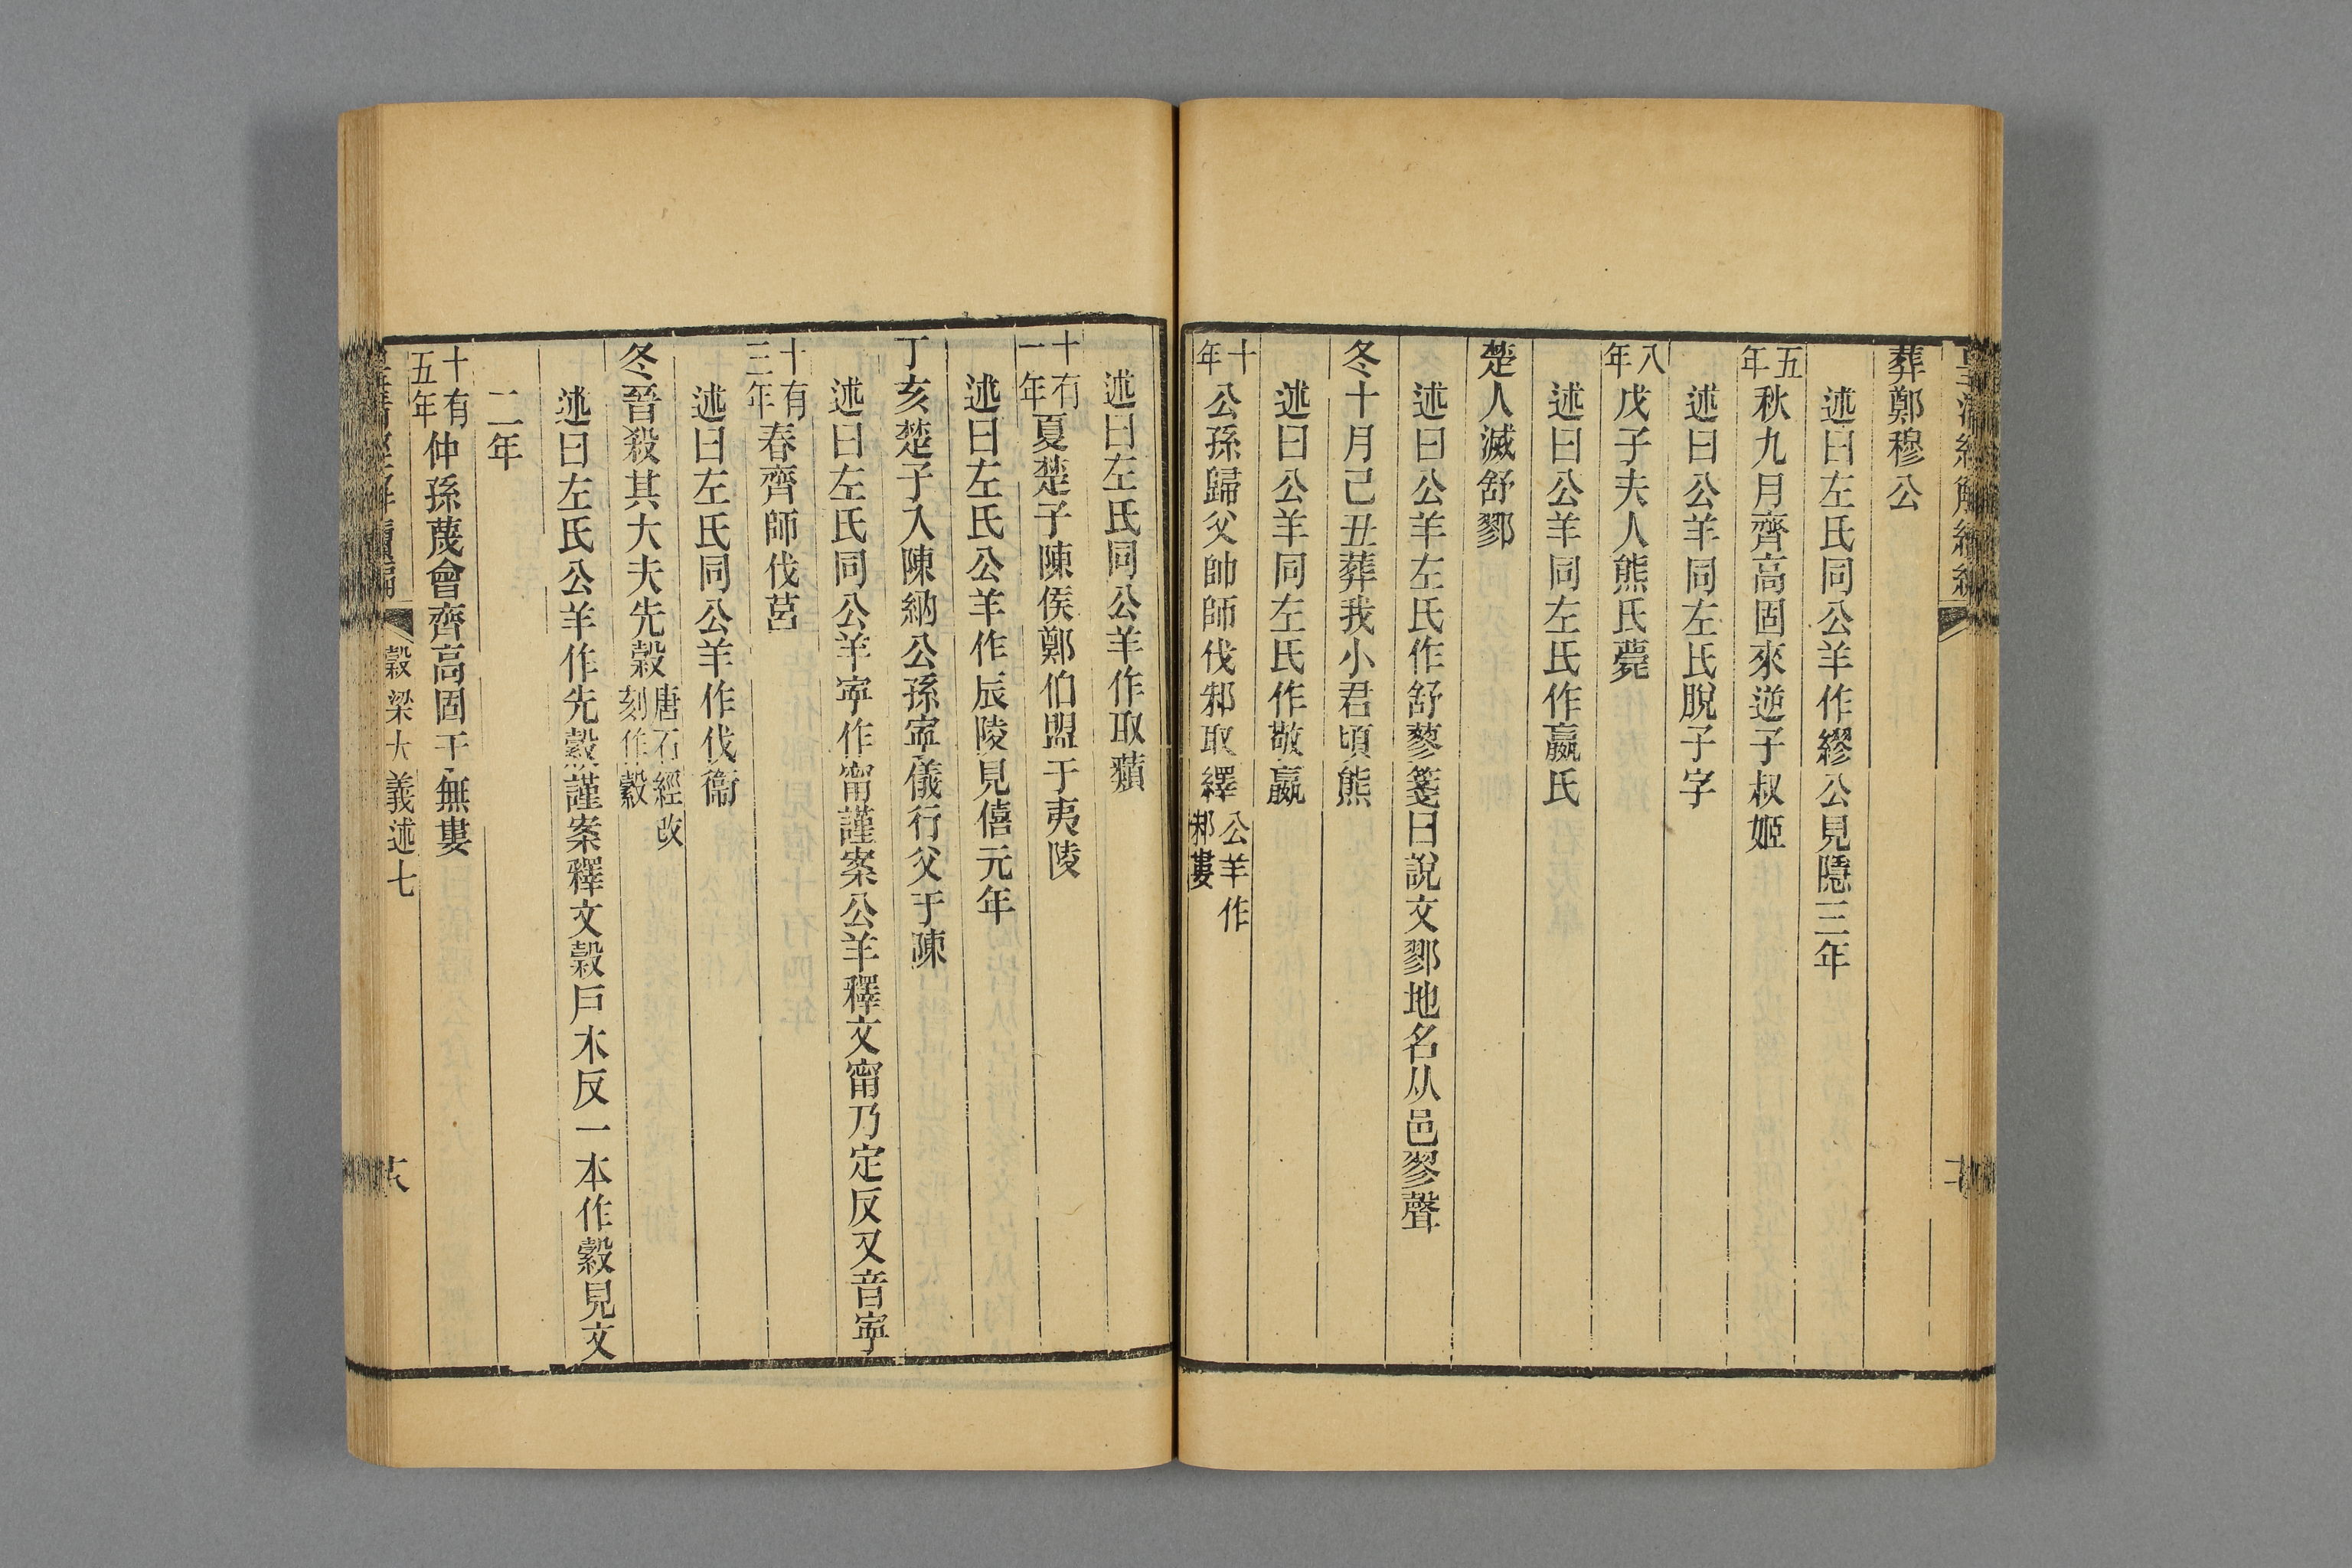 皇清經解續編
葬鄭穆公
述曰左氏同公羊作繆公見隱三年
五年秋九月齊高固來逆子叔姬
述曰公羊同左氏脫子字
八年戊子夫人熊氏薨
述曰公羊同左氏作嬴氏
楚人滅舒鄝
述曰公羊左氏作舒蓼箋曰說文鄝地名从邑翏聲
冬十月己丑葬我小君頃熊
述曰公羊同左氏作敬嬴
十年公孫歸父帥師伐邾取繹公羊作邾婁
述曰左氏同公羊作取蘱
十有一年夏楚子陳侯鄭伯盟于夷陵
述曰左氏公羊作辰陵見僖元年
丁亥楚子入陳納公孫寍儀行父于陳
述曰左氏同公羊寍作甯謹案公羊釋文甯乃定反又音寍
十有三年春齊師伐莒
述曰左氏同公羊作伐衞
冬晉殺其大夫先縠唐石經改刻作穀
述曰左氏公羊作先縠謹案釋文縠戶木反一本作穀見文
二年
十有五年仲孫蔑會齊高固于無婁
皇清經解續編 穀梁大義述七 十八